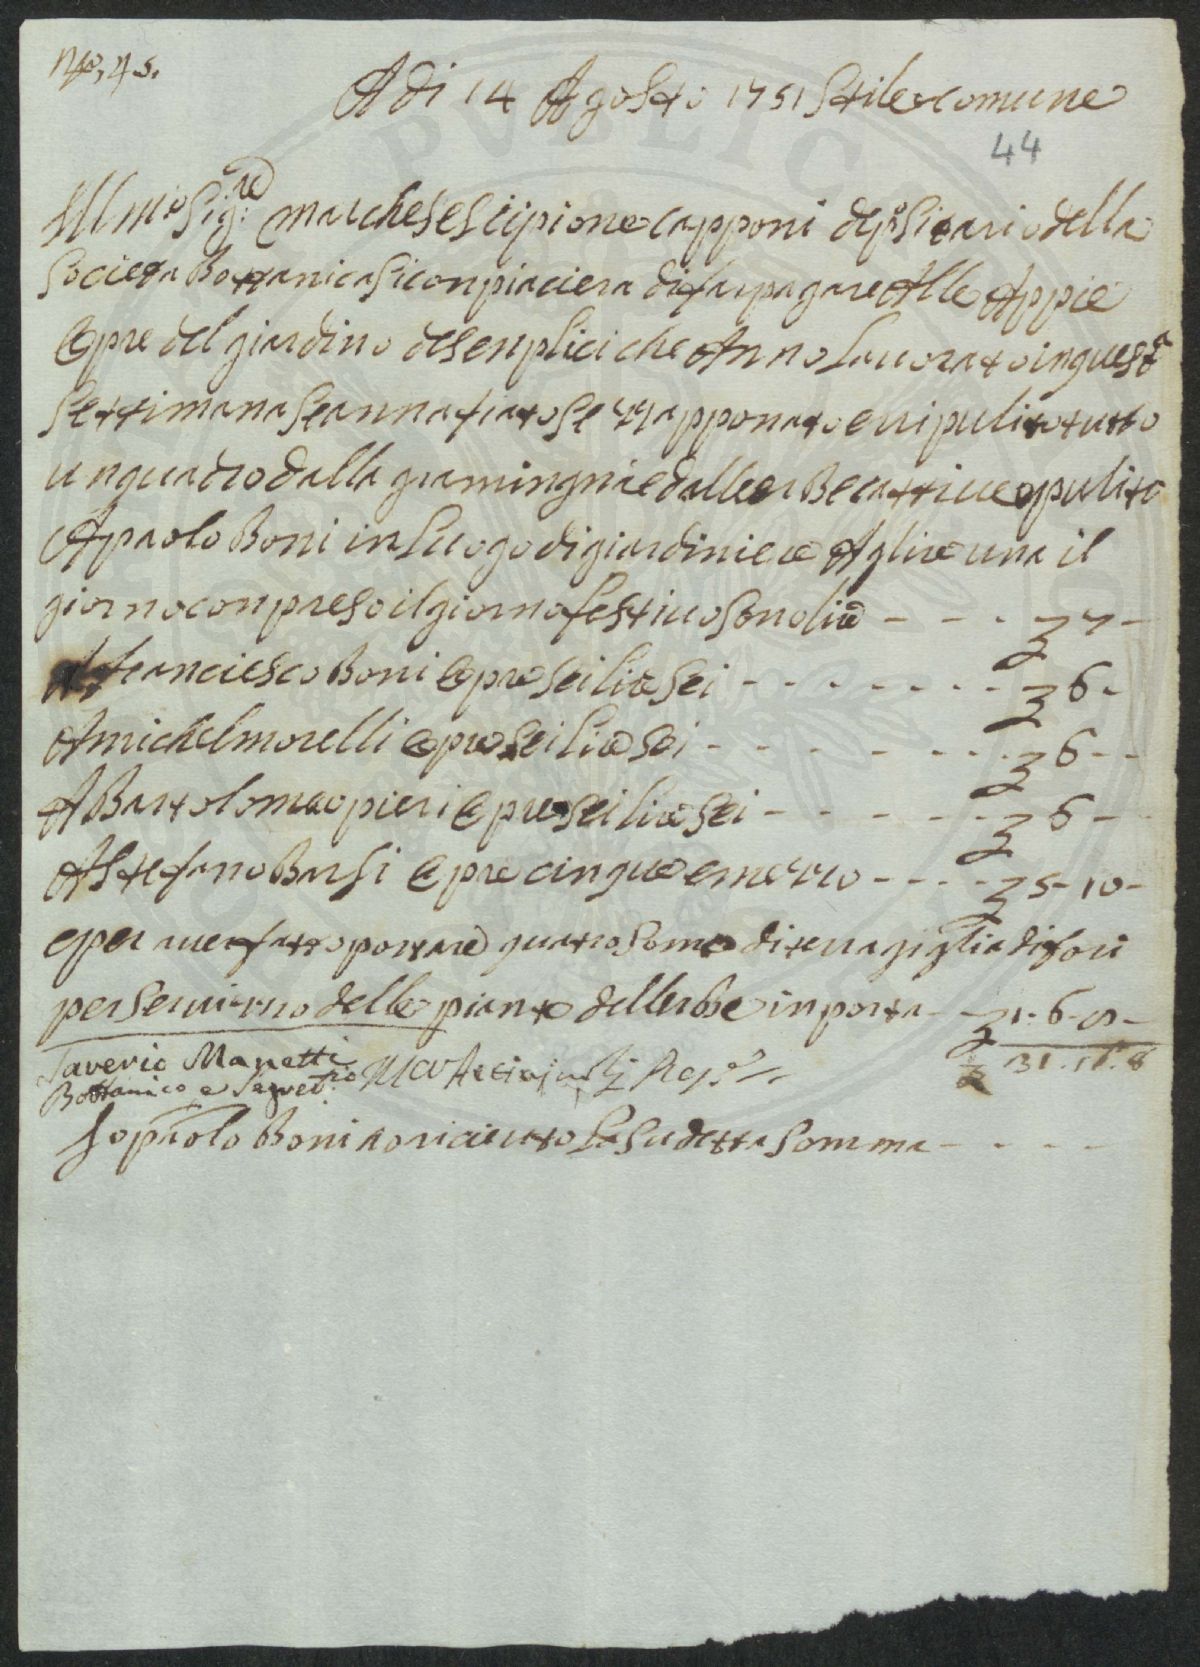 N.o 45.
A di 14 Agosto 1751 Stile comune
44
Ill.mo Sig:re marchese Scipione Capponi depositario della
Società Bottanica Si conpiacierà di far pagare Alle Appie
Opre del giardino de Senplici che Anno Lavorato in questa
Settimana Se annafiato Se zapponato e ripulito tutto
un quadro dalla gramingnia e dalle er Be cattive e pulito
A paolo Boni in luogo di giardiniere A lire una il
giorno conpreso il giorno festivo Sono lire - - - 7 -
A franciesco Boni Opre Sei lire Sei - - - - - - - 6 -
A michel morelli Opre Sei lire Sei - - - - - - - 6 - -
A Bartolomeo pieri Opre Sei lire Sei - - - - - - 6 - -
A Stefano Barsi Opre cinque e mezzo - - - - 5 - 10 -
e per aver fatto portare quatro Some di terra gigliia di fori
per Servizzio delle piante dell erbe inporta - 1 - 6 - 8 -
Saverio Manetti 31 . 16 . 8
Bottanico e Segret.rio
Io paolo Boni ho riceuto La Sudetta Somma - - - -